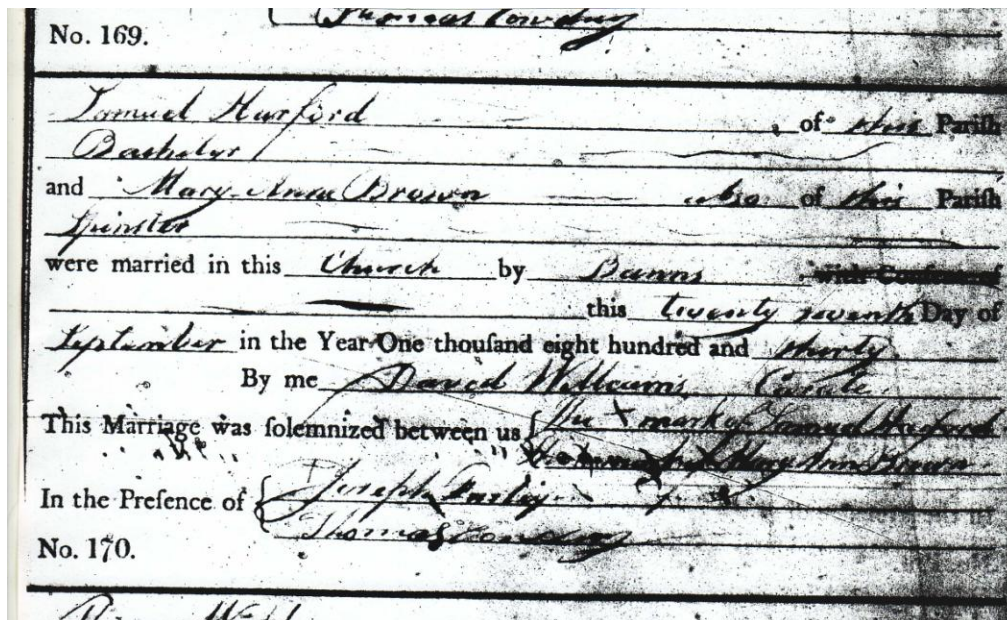 Thomas Cowdry
No. 169.
Samuel Harford of this Pariſh
Bachelor
and Mary Ann Brown also of this Pariſh
Spinster
were married in this Church by Banns with Conſent of
this twenty seventh Day of
September in the Year One thouſand eight hundred and thirty
By me David Williams, Curate
This Marriage was ſolemnized between us The X mark of Samuel Harford
X mark of Mary Ann Brown
In the Preſence of Joseph Farley
Thomas Cowdry
No. 170.